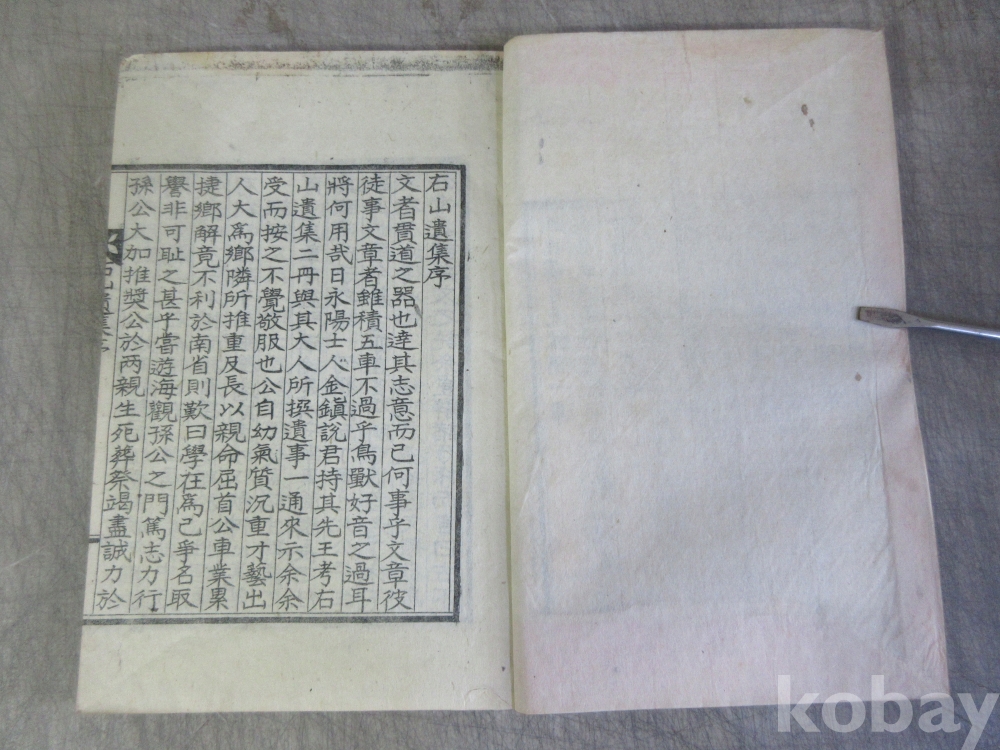 右山遺集序
文者貫道之器也達其志意而已何事乎文章彼
徒事文章者雖積五車不過乎鳥獸好音之過耳
將何用哉日永陽士人金鎭說君持其先王考右
山遺集二冊與其大人所撰遺事一通來示余余
受而按之不覺敬服也公自幼氣質沉重才藝出
人大爲鄉隣所推重及長以親命屈首公車業累
捷鄉解竟不利於南省則歎曰學在爲己爭名取
譽非可恥之甚乎嘗遊海觀孫公之門篤志力行
孫公大加推獎公於兩親生死葬祭竭盡誠力於
右山遺集序
kobay